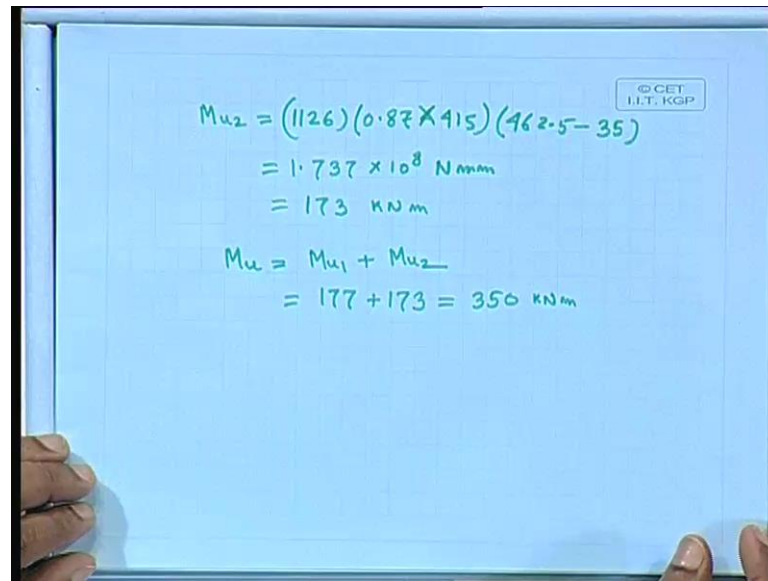 © CET
I.I.T. KGP
Mu2 = (1126)(0.87 X 415)(462.5 - 35)
= 1.737 × 10⁸ Nmm
= 173 KNm
Mu = Mu1 + Mu2
= 177 + 173 = 350 KNm